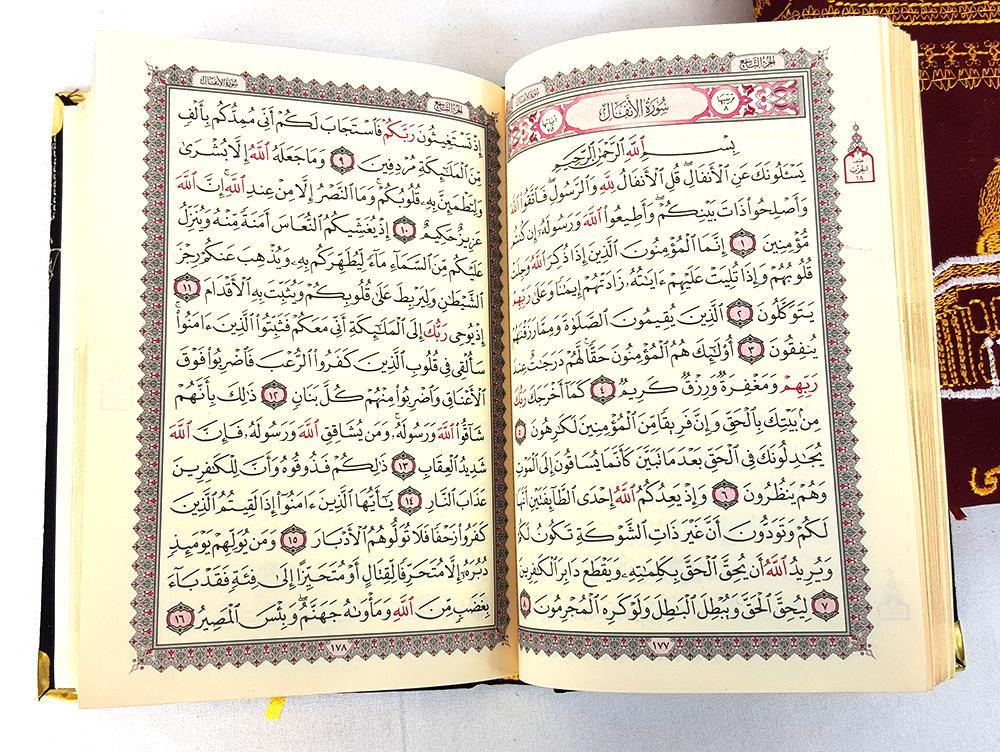 الجزء التاسع
سورة الأنفال
سورة الأنفال
ترتيبها ٨
آياتها ٧٥
بِسْمِ ٱللَّهِ ٱلرَّحْمَٰنِ ٱلرَّحِيمِ
يَسْـَٔلُونَكَ عَنِ ٱلْأَنفَالِ قُلِ ٱلْأَنفَالُ لِلَّهِ وَٱلرَّسُولِ فَٱتَّقُوا۟ ٱللَّهَ
وَأَصْلِحُوا۟ ذَاتَ بَيْنِكُمْ وَأَطِيعُوا۟ ٱللَّهَ وَرَسُولَهُۥٓ إِن كُنتُم
مُّؤْمِنِينَ ١ إِنَّمَا ٱلْمُؤْمِنُونَ ٱلَّذِينَ إِذَا ذُكِرَ ٱللَّهُ وَجِلَتْ
قُلُوبُهُمْ وَإِذَا تُلِيَتْ عَلَيْهِمْ ءَايَٰتُهُۥ زَادَتْهُمْ إِيمَٰنًا وَعَلَىٰ رَبِّهِمْ
يَتَوَكَّلُونَ ٢ ٱلَّذِينَ يُقِيمُونَ ٱلصَّلَوٰةَ وَمِمَّا رَزَقْنَٰهُمْ
يُنفِقُونَ ٣ أُو۟لَٰٓئِكَ هُمُ ٱلْمُؤْمِنُونَ حَقًّا لَّهُمْ دَرَجَٰتٌ عِندَ
رَبِّهِمْ وَمَغْفِرَةٌ وَرِزْقٌ كَرِيمٌ ٤ كَمَآ أَخْرَجَكَ رَبُّكَ
مِنۢ بَيْتِكَ بِٱلْحَقِّ وَإِنَّ فَرِيقًا مِّنَ ٱلْمُؤْمِنِينَ لَكَٰرِهُونَ ٥
يُجَٰدِلُونَكَ فِى ٱلْحَقِّ بَعْدَ مَا تَبَيَّنَ كَأَنَّمَا يُسَاقُونَ إِلَى ٱلْمَوْتِ
وَهُمْ يَنظُرُونَ ٦ وَإِذْ يَعِدُكُمُ ٱللَّهُ إِحْدَى ٱلطَّآئِفَتَيْنِ أَنَّهَا
لَكُمْ وَتَوَدُّونَ أَنَّ غَيْرَ ذَاتِ ٱلشَّوْكَةِ تَكُونُ لَكُمْ
وَيُرِيدُ ٱللَّهُ أَن يُحِقَّ ٱلْحَقَّ بِكَلِمَٰتِهِۦ وَيَقْطَعَ دَابِرَ ٱلْكَٰفِرِينَ
٧ لِيُحِقَّ ٱلْحَقَّ وَيُبْطِلَ ٱلْبَٰطِلَ وَلَوْ كَرِهَ ٱلْمُجْرِمُونَ ٨
١٧٧
الحزب
١٨
الجزء التاسع
سورة الأنفال
إِذْ تَسْتَغِيثُونَ رَبَّكُمْ فَٱسْتَجَابَ لَكُمْ أَنِّى مُمِدُّكُم بِأَلْفٍ
مِّنَ ٱلْمَلَٰٓئِكَةِ مُرْدِفِينَ ٩ وَمَا جَعَلَهُ ٱللَّهُ إِلَّا بُشْرَىٰ
وَلِتَطْمَئِنَّ بِهِۦ قُلُوبُكُمْ وَمَا ٱلنَّصْرُ إِلَّا مِنْ عِندِ ٱللَّهِ إِنَّ ٱللَّهَ
عَزِيزٌ حَكِيمٌ ١٠ إِذْ يُغَشِّيكُمُ ٱلنُّعَاسَ أَمَنَةً مِّنْهُ وَيُنَزِّلُ
عَلَيْكُم مِّنَ ٱلسَّمَآءِ مَآءً لِّيُطَهِّرَكُم بِهِۦ وَيُذْهِبَ عَنكُمْ رِجْزَ
ٱلشَّيْطَٰنِ وَلِيَرْبِطَ عَلَىٰ قُلُوبِكُمْ وَيُثَبِّتَ بِهِ ٱلْأَقْدَامَ ١١
إِذْ يُوحِى رَبُّكَ إِلَى ٱلْمَلَٰٓئِكَةِ أَنِّى مَعَكُمْ فَثَبِّتُوا۟ ٱلَّذِينَ ءَامَنُوا۟
سَأُلْقِى فِى قُلُوبِ ٱلَّذِينَ كَفَرُوا۟ ٱلرُّعْبَ فَٱضْرِبُوا۟ فَوْقَ
ٱلْأَعْنَاقِ وَٱضْرِبُوا۟ مِنْهُمْ كُلَّ بَنَانٍ ١٢ ذَٰلِكَ بِأَنَّهُمْ
شَآقُّوا۟ ٱللَّهَ وَرَسُولَهُۥ وَمَن يُشَاقِقِ ٱللَّهَ وَرَسُولَهُۥ فَإِنَّ ٱللَّهَ
شَدِيدُ ٱلْعِقَابِ ١٣ ذَٰلِكُمْ فَذُوقُوهُ وَأَنَّ لِلْكَٰفِرِينَ
عَذَابَ ٱلنَّارِ ١٤ يَٰٓأَيُّهَا ٱلَّذِينَ ءَامَنُوٓا۟ إِذَا لَقِيتُمُ ٱلَّذِينَ
كَفَرُوا۟ زَحْفًا فَلَا تُوَلُّوهُمُ ٱلْأَدْبَارَ ١٥ وَمَن يُوَلِّهِمْ يَوْمَئِذٍ
دُبُرَهُۥٓ إِلَّا مُتَحَرِّفًا لِّقِتَالٍ أَوْ مُتَحَيِّزًا إِلَىٰ فِئَةٍ فَقَدْ بَآءَ
بِغَضَبٍ مِّنَ ٱللَّهِ وَمَأْوَىٰهُ جَهَنَّمُ وَبِئْسَ ٱلْمَصِيرُ ١٦
١٧٨